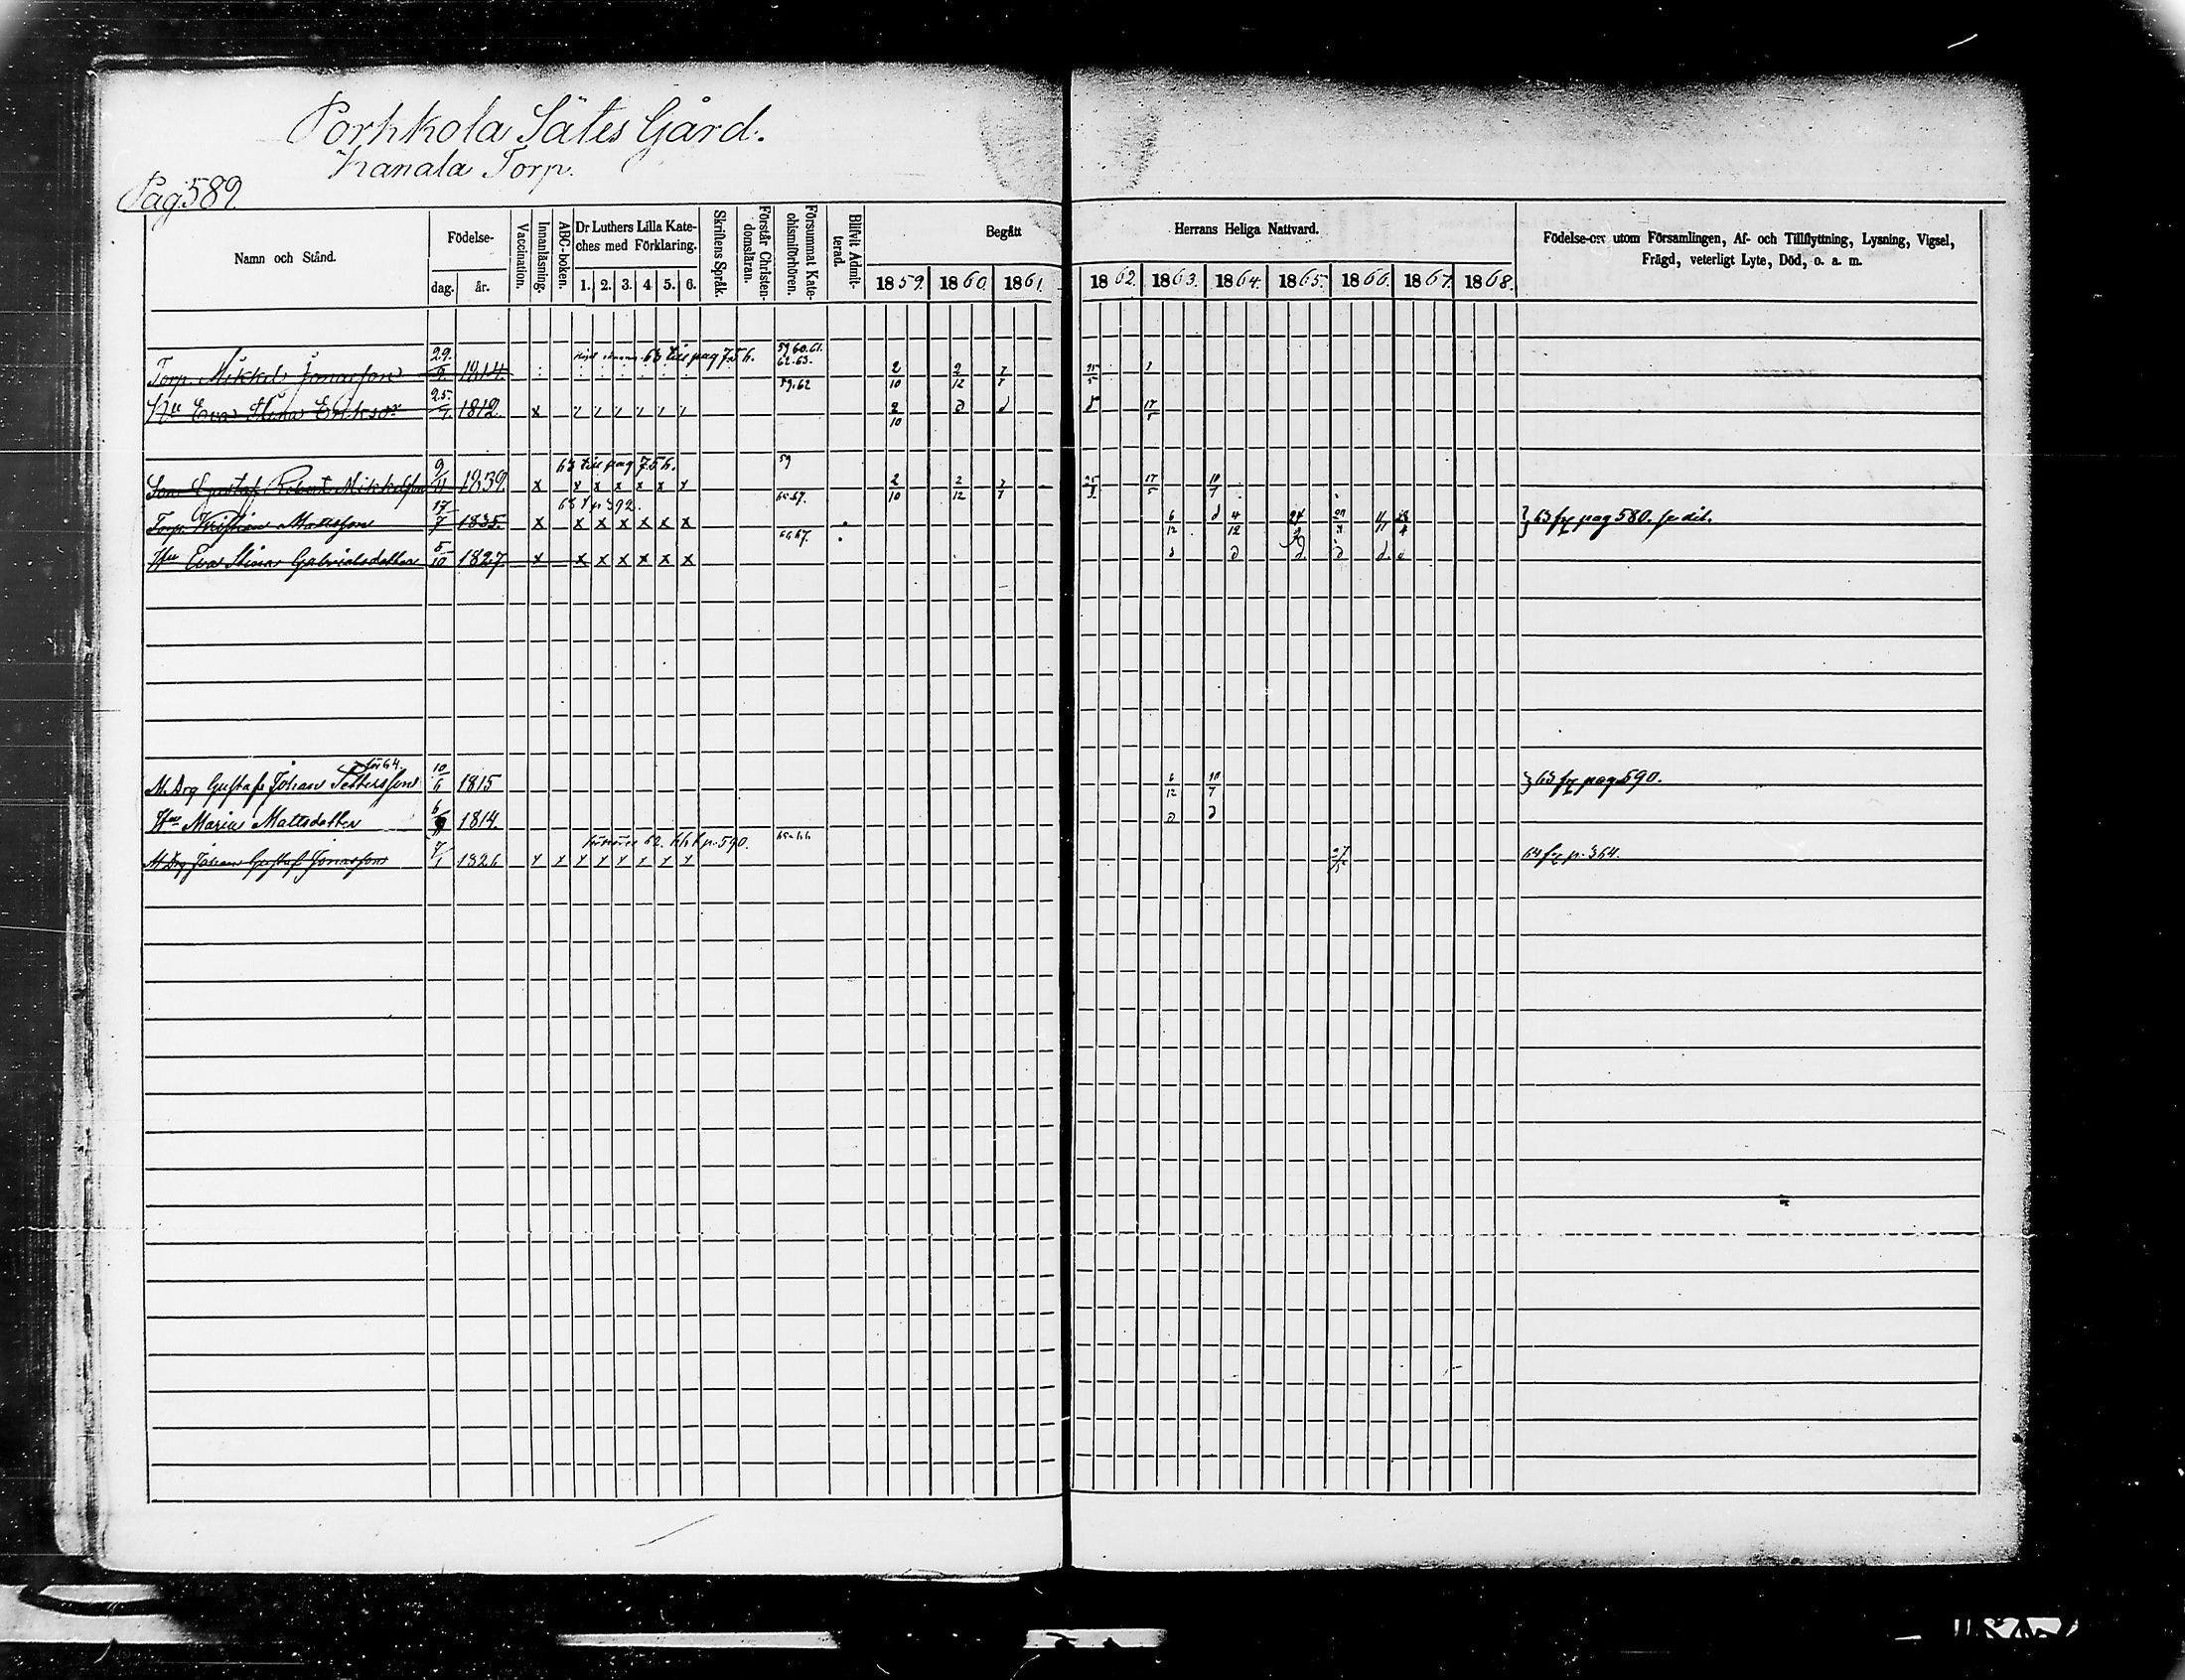 Porkkola Sätes Gård.
Kanala Torp.
Pag 589
Namn och Stånd.
Födelse-
dag.
år.
Vaccination.
Innanläsning.
ABC-boken.
Dr Luthers Lilla Kate-
ches med Förklaring.
1. 2. 3. 4 5. 6.
Skriftens Språk.
Förstår Christen-
domsläran.
Försummat Kate-
chismiförhören.
Blifvit Admit-
terad.
Begått
Herrans Heliga Nattvard.
1859. 1860. 1861. 1862. 1863. 1864. 1865. 1866. 1867. 1868.
Födelse-ort utom Församlingen, Af- och Tillflyttning, Lysning, Vigsel,
Frägd, veterligt Lyte, Död, o. a. m.
63 till pag 756. 59. 60. 61. 62. 63.
Torp. Mikkel Jonasson 29/9 1814. 2/10 2/12 25/5
59. 62
Hu Eva Stina Eriksdr 25/7 1812. x 2/10 d d d 17/5
63 till pag 756. 59
Son Gustaf Robert Mikkelson 9/11 1839. x x x x x x x 2/10 2/12 17/5 10/7
65 t p 392.
Torp. Kristian Mattsson 17/7 1835. x x x x x x x 6/12 d 4/12 } 63 fr pag 580. se dit.
66 67.
Hu Eva Stina Gabrielsdotter 5/10 1827. x x x x x x x d d d d d
M. Drg Gustaf Johan Pettersson 10/6 1815 6/12 10/7 } 63 fr pag 590.
Hu Maria Mattsdotter 6 1814. d d
62. p. 590. 65-66
M Drg Johan Gustaf Jonasson 7/1 1826 x x x x x x x x 64 fr p. 364.